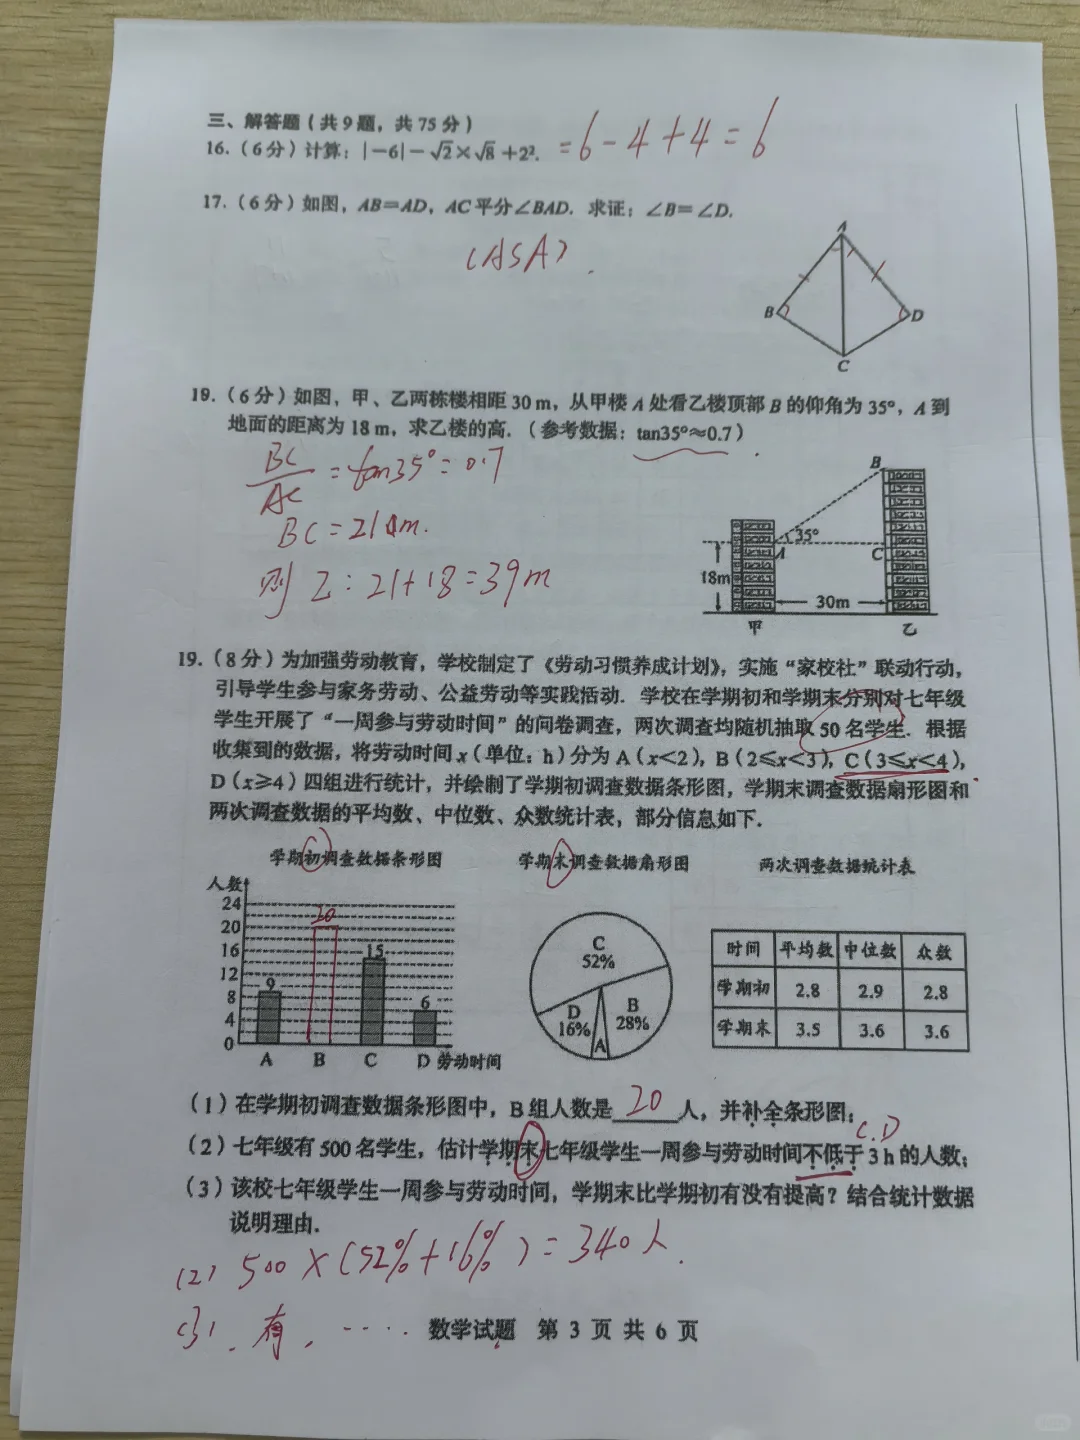 三、解答题(共9题，共75分)
16.(6分)计算：|-6|-√2×√8+2². =6-4+4=6
17.(6分)如图，AB=AD，AC平分∠BAD. 求证：∠B=∠D.
(ASA).
A
B
D
C
19.(6分)如图，甲、乙两栋楼相距30m，从甲楼A处看乙楼顶部B的仰角为35°，A到
地面的距离为18m，求乙楼的高.(参考数据：tan35°≈0.7)
BC/AC=tan35°=0.7
BC=21m.
则乙：21+18=39m
B
35°
A
C
18m
30m
甲
乙
19.(8分)为加强劳动教育，学校制定了《劳动习惯养成计划》，实施“家校社”联动行动，
引导学生参与家务劳动、公益劳动等实践活动. 学校在学期初和学期末分别对七年级
学生开展了“一周参与劳动时间”的问卷调查，两次调查均随机抽取50名学生. 根据
收集到的数据，将劳动时间x(单位：h)分为A(x<2)，B(2≤x<3)，C(3≤x<4)，
D(x≥4)四组进行统计，并绘制了学期初调查数据条形图，学期末调查数据扇形图和
两次调查数据的平均数、中位数、众数统计表，部分信息如下.
学期初调查数据条形图
人数
24
20
16
12
8
4
0
9
20
15
6
A B C D 劳动时间
学期末调查数据扇形图
C
52%
D
16%
B
28%
A
两次调查数据统计表
时间 平均数 中位数 众数
学期初 2.8 2.9 2.8
学期末 3.5 3.6 3.6
(1)在学期初调查数据条形图中，B组人数是 20 人，并补全条形图；
C.D
(2)七年级有500名学生，估计学期末七年级学生一周参与劳动时间不低于3h的人数；
(3)该校七年级学生一周参与劳动时间，学期末比学期初有没有提高？结合统计数据
说明理由.
(2) 500×(52%+16%)=340人.
(3). 有. ····
数学试题 第3页共6页